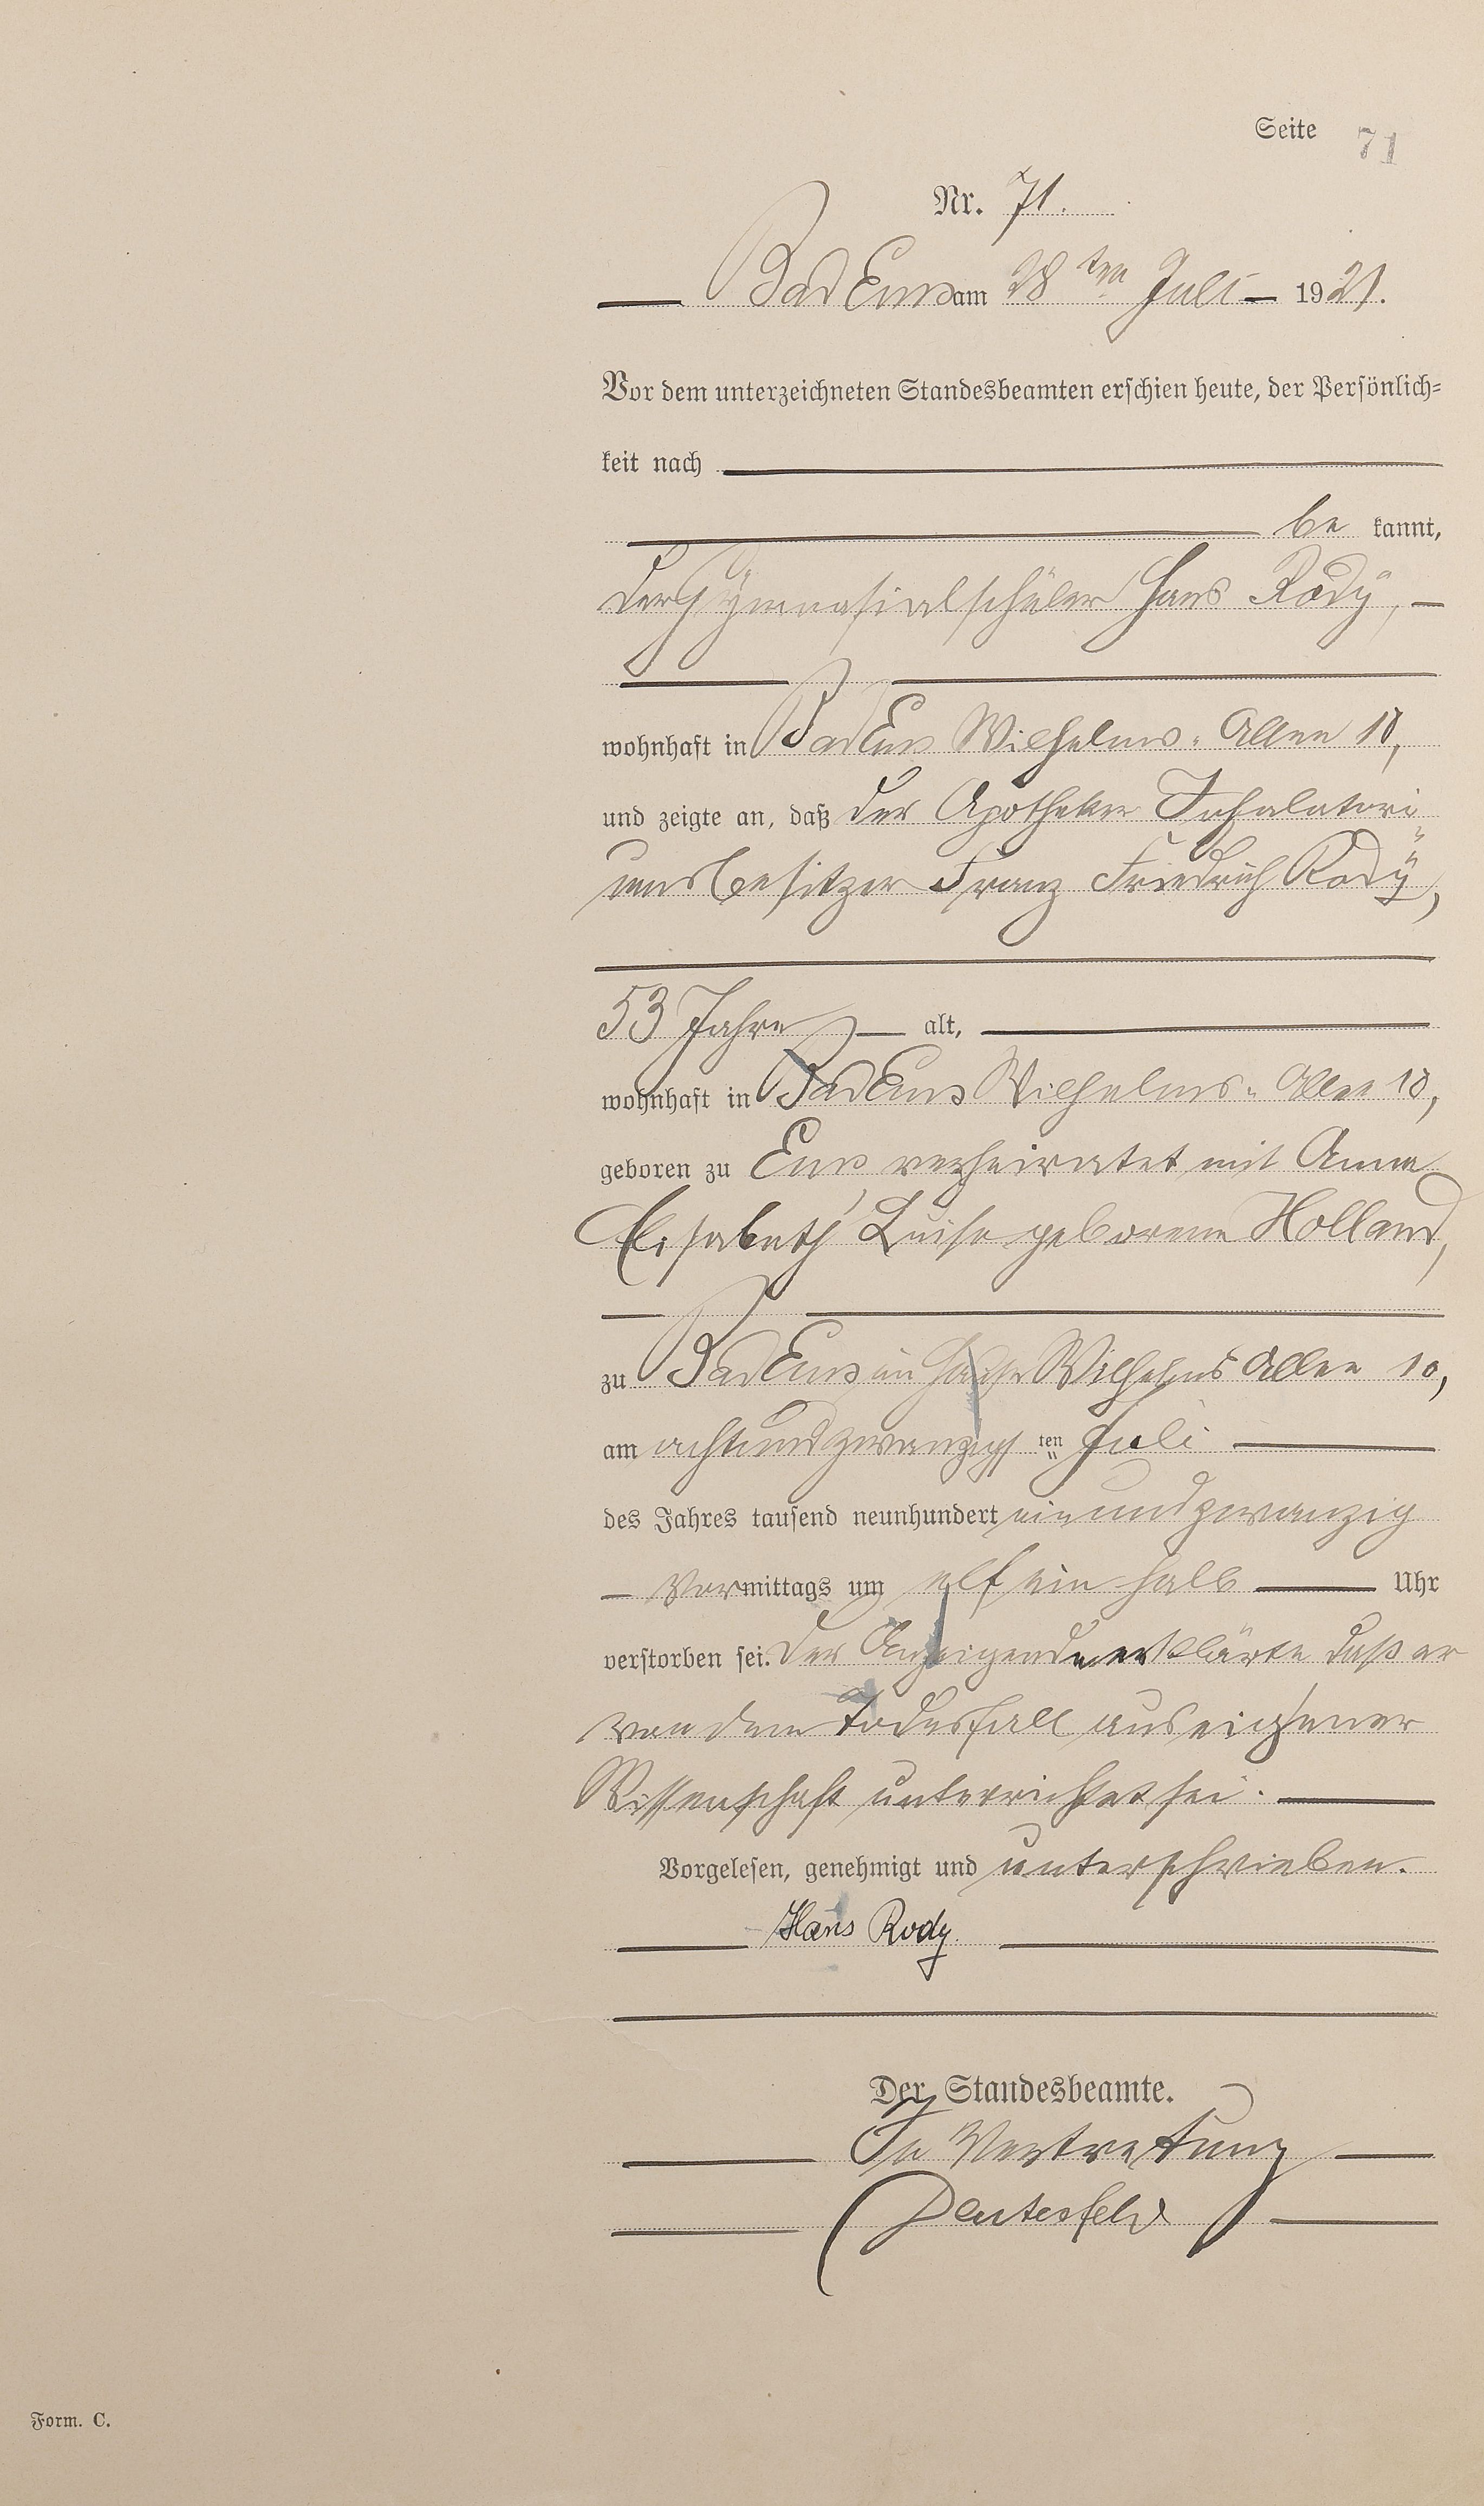 Seite 71
Nr. 71.
Bad Ems am 28ten Juli 1921.
Vor dem unterzeichneten Standesbeamten erschien heute, der Persönlich-
keit nach
be kannt,
der Gymnasialschüler Hans Rody,
wohnhaft in Bad Ems Wilhelms-Allee 10,
und zeigte an, daß der Apotheker Inhalatori-
umsbesitzer Franz Friedrich Rody,
53 Jahre alt,
wohnhaft in Bad Ems Wilhelms-Allee 10,
geboren zu Ems verheiratet mit Anna
Elisabeth Luise geborene Holland,
zu Bad Ems im Hause Wilhelms Allee 10,
am achtundzwanzigsten Juli
des Jahres tausend neunhundert einundzwanzig
Vormittags um elf ein halb Uhr
verstorben sei. Der Anzeigende erklärte daß er
von dem Todesfall aus eigener
Wissenschaft unterrichtet sei.
Vorgelesen, genehmigt und unterschrieben.
Hans Rody.
Der Standesbeamte.
In Vertretung
Form. C.